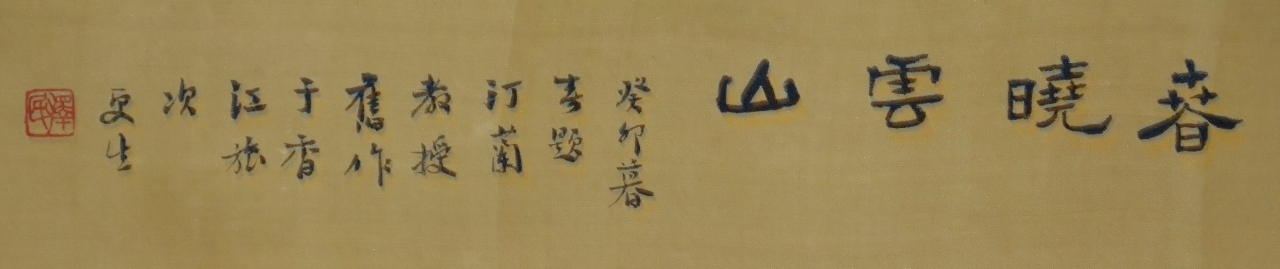 春曉雲山
癸卯暮
春題
汀蘭
教授
舊作
于香
江旅
次
更生